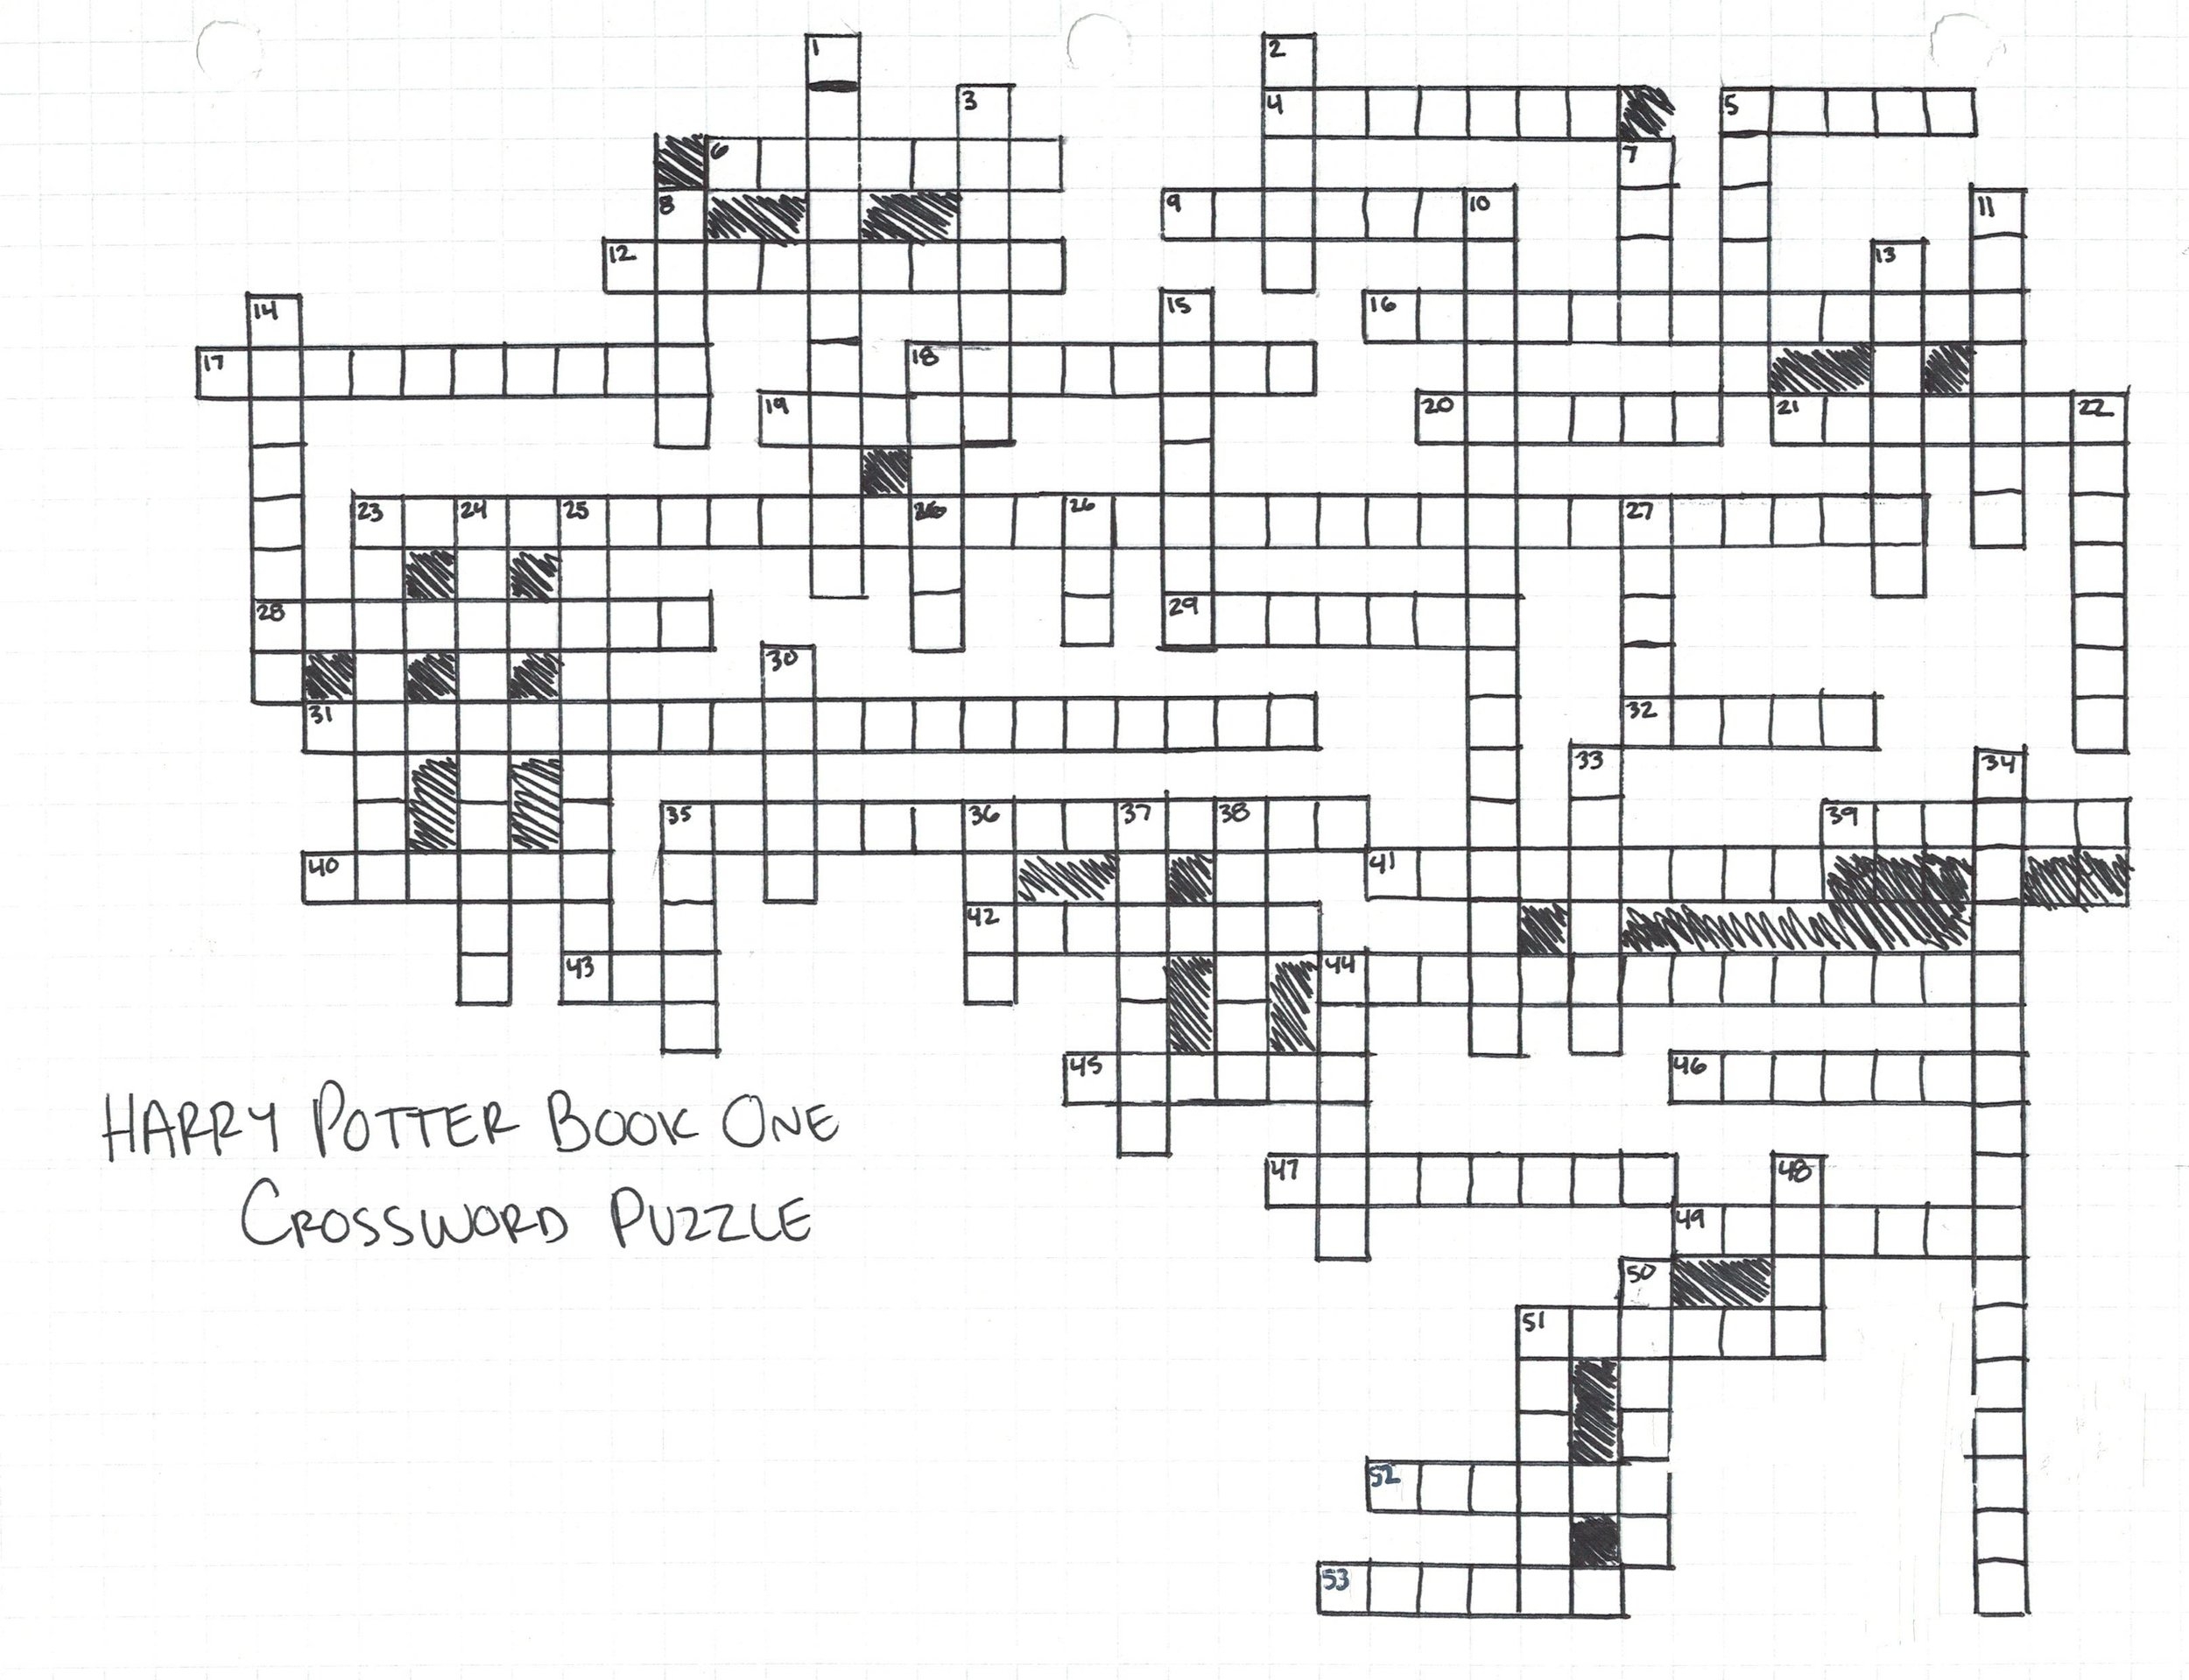 1 2
3 4 5
6 7
8 9 10 11
12 13
14 15 16
17 18
19 20 21 22
23 24 25 26 27
28 29
30
31 32
33 34
35 36 37 38 39
40 41
42
43 44
45 46
47 48
49
50
51
52
53
HARRY POTTER BOOK ONE
CROSSWORD PUZZLE